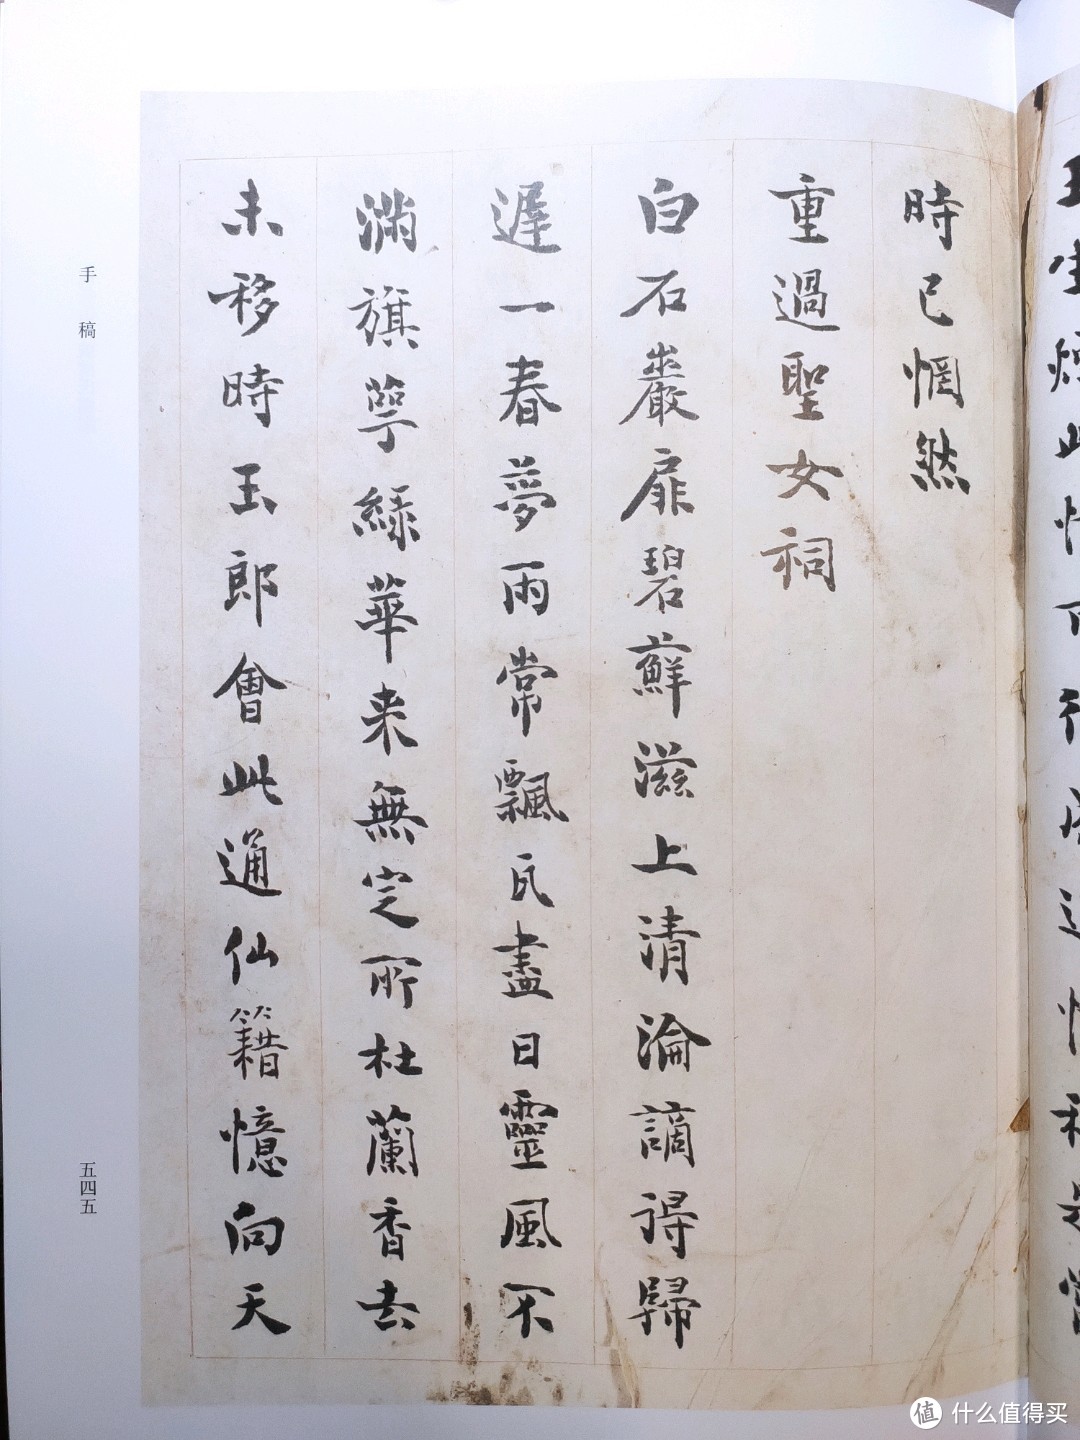 時已惘然
重過聖女祠
白石巖扉碧蘚滋上清淪謫得歸
遲一春夢雨常飄瓦盡日靈風不
滿旗萼綠華来無定所杜蘭香去
未移時玉郎會此通仙籍憶向天
手稿
五四五
值 什么值得买